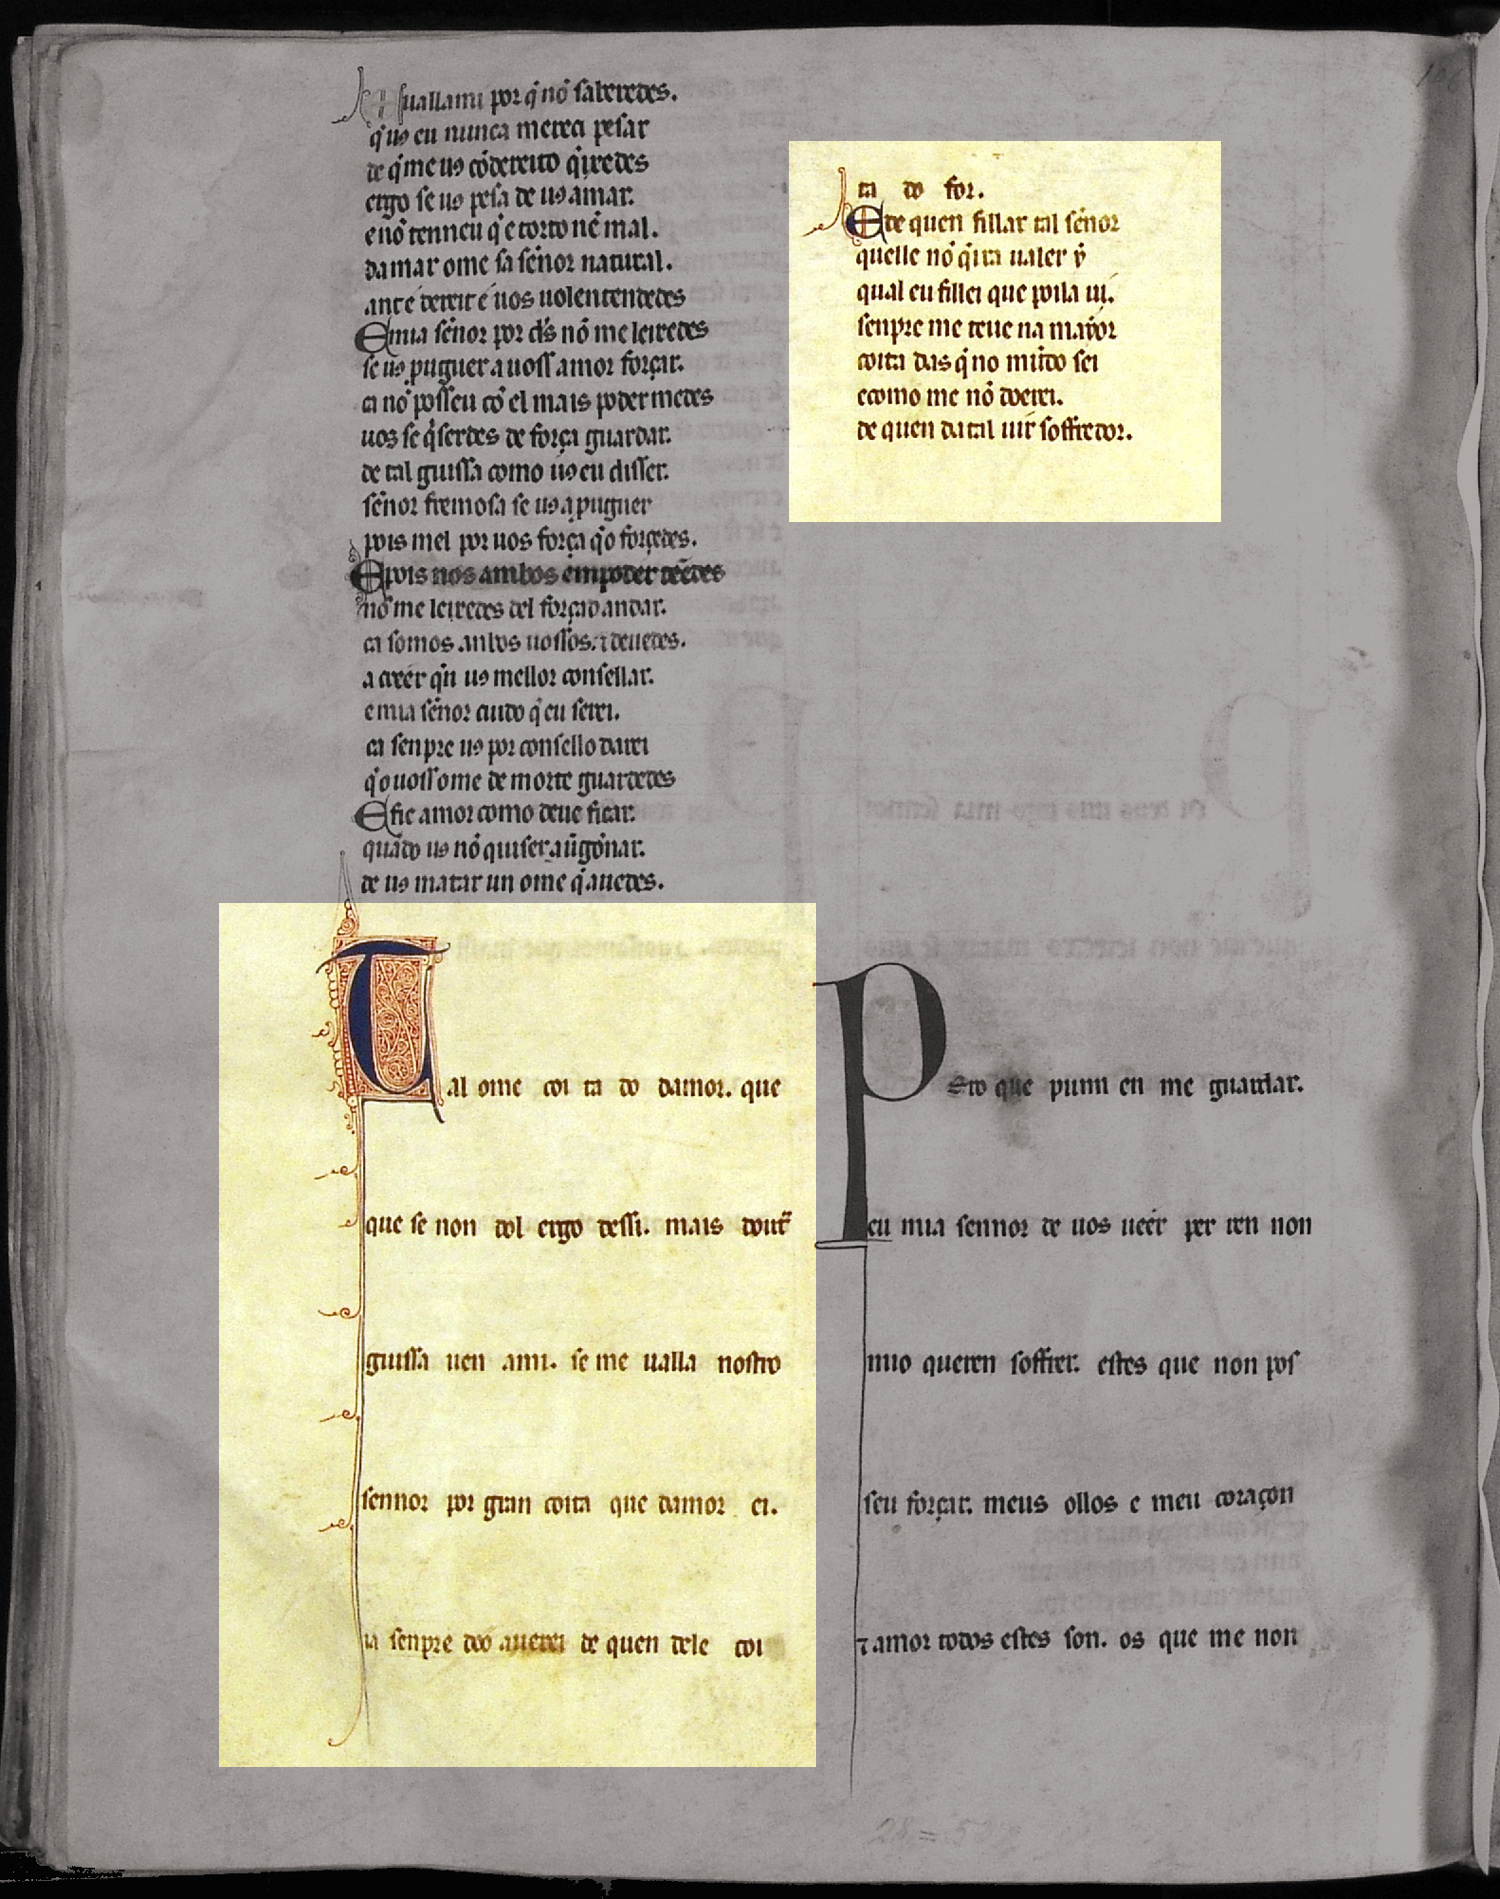 fuallami por q̃ nõ saberedes.
q̃ uꝯ eu nunca mereci pesar
de q̃ me uꝯ cõdereito q̃ixedes
ergo se uꝯ pesa de uꝯ amar.
e nõ tenneu q̃ e torto nẽ mal.
damar ome sa señor natural.
ant e dereit e uos uolentendedes
E mia señor por d̃s nõ me leixedes
se uꝯ puguer a uoss amor forçar.
ca nõ posseu cõ el mais poder medes
uos se q̃serdes de força guardar.
de tal guissa como uꝯ eu disser.
señor fremosa se uꝯ a puguer
pois mel por uos força q̃o forçedes.
E pois nos ambos em poder tẽedes
nõ me leixedes del forçado andar.
ca somos anbos uossos. ⁊ deuedes.
a creer q̃n uꝯ mellor consellar.
e mia señor cuido q̃ eu serei.
ca senpre uꝯ por consello darei
q̃ o uoss ome de morte guardedes
E fie amor como deue ficar.
quãdo uꝯ nõ quiser auergõnar.
de uꝯ matar un ome q̃ auedes.
Tal ome coi ta do damor. que
que se non dol ergo dessi. mais doutr̃
guissa uen ami. se me ualla nostro
sennor por gran coita que damor ei.
ia senpre doo auerei de quen dele coi
ta do for.
E de quen fillar tal señor
quelle nõ q̃ira ualer ẏ
qual eu fillei que poila ui.
senpre me teue na mayor
coita das q̃ no mũdo sei
e como me nõ doerei.
de quen da tal uir soffredor.
Pero que punn en me guardar.
eu mia sennor de uos ueer per ren non
mio queren soffrer. estes que non pos
seu forçar. meus ollos e meu coraçon
⁊ amor todos estes son. os que me non